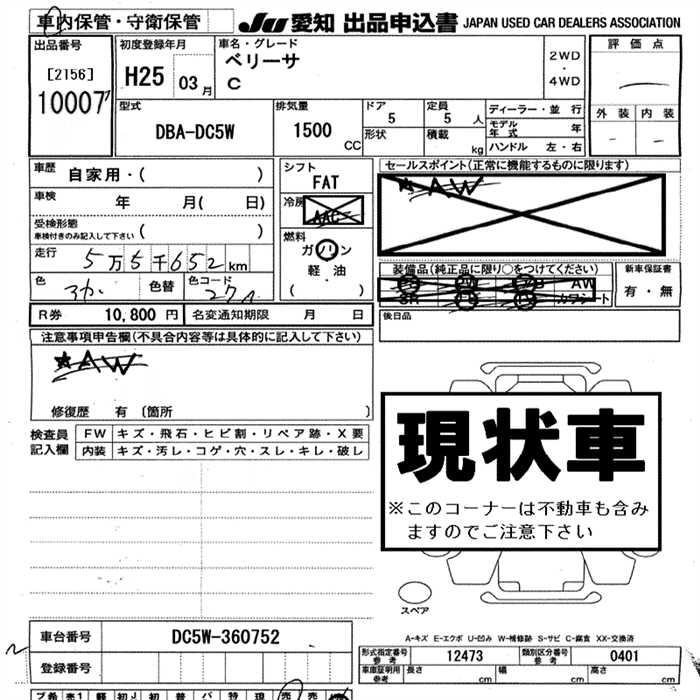 車内保管・守衛保管
JU 愛知 出品申込書 JAPAN USED CAR DEALERS ASSOCIATION
出品番号
[2156]
10007
初度登録年月
H25 03 月
車名・グレード
ベリーサ
C
2WD
・
4WD
評価点
外装 内装
型式
DBA-DC5W
排気量
1500 CC
ドア 5
形状
定員 5 人
積載 kg
ディーラー・並行
モデル年式 年
ハンドル 左・右
車歴 自家用・( )
車検 年 月( 日)
受検形態
車検付きのみ記入して下さい ( )
走行 5万5千652km
色 色替 色コード
27A
シフト
FAT
冷房
AAC
燃料
ガソリン
軽油
( )
セールスポイント(正常に機能するものに限ります)
★AW
装備品(純正品に限り○をつけてください)
AW
SR カワシート
新車保証書
有・無
後日品
R券 10,800円 名変通知期限 月 日
注意事項申告欄(不具合内容等は具体的に記入して下さい)
★AW
修復歴 有 〔箇所 〕
検査員記入欄
FW キズ・飛石・ヒビ割・リペア跡・X要
内装 キズ・汚レ・コゲ・穴・スレ・キレ・破レ
現状車
※このコーナーは不動車も含み
ますのでご注意下さい
スペア
A-キズ E-エクボ U-凹み W-補修跡 S-サビ C-腐食 XX-交換済
車台番号 DC5W-360752
登録番号
型式指定番号 参考 12473 類別区分番号 参考 0401
車庫証明用 参考 長さ cm 幅 cm 高さ cm